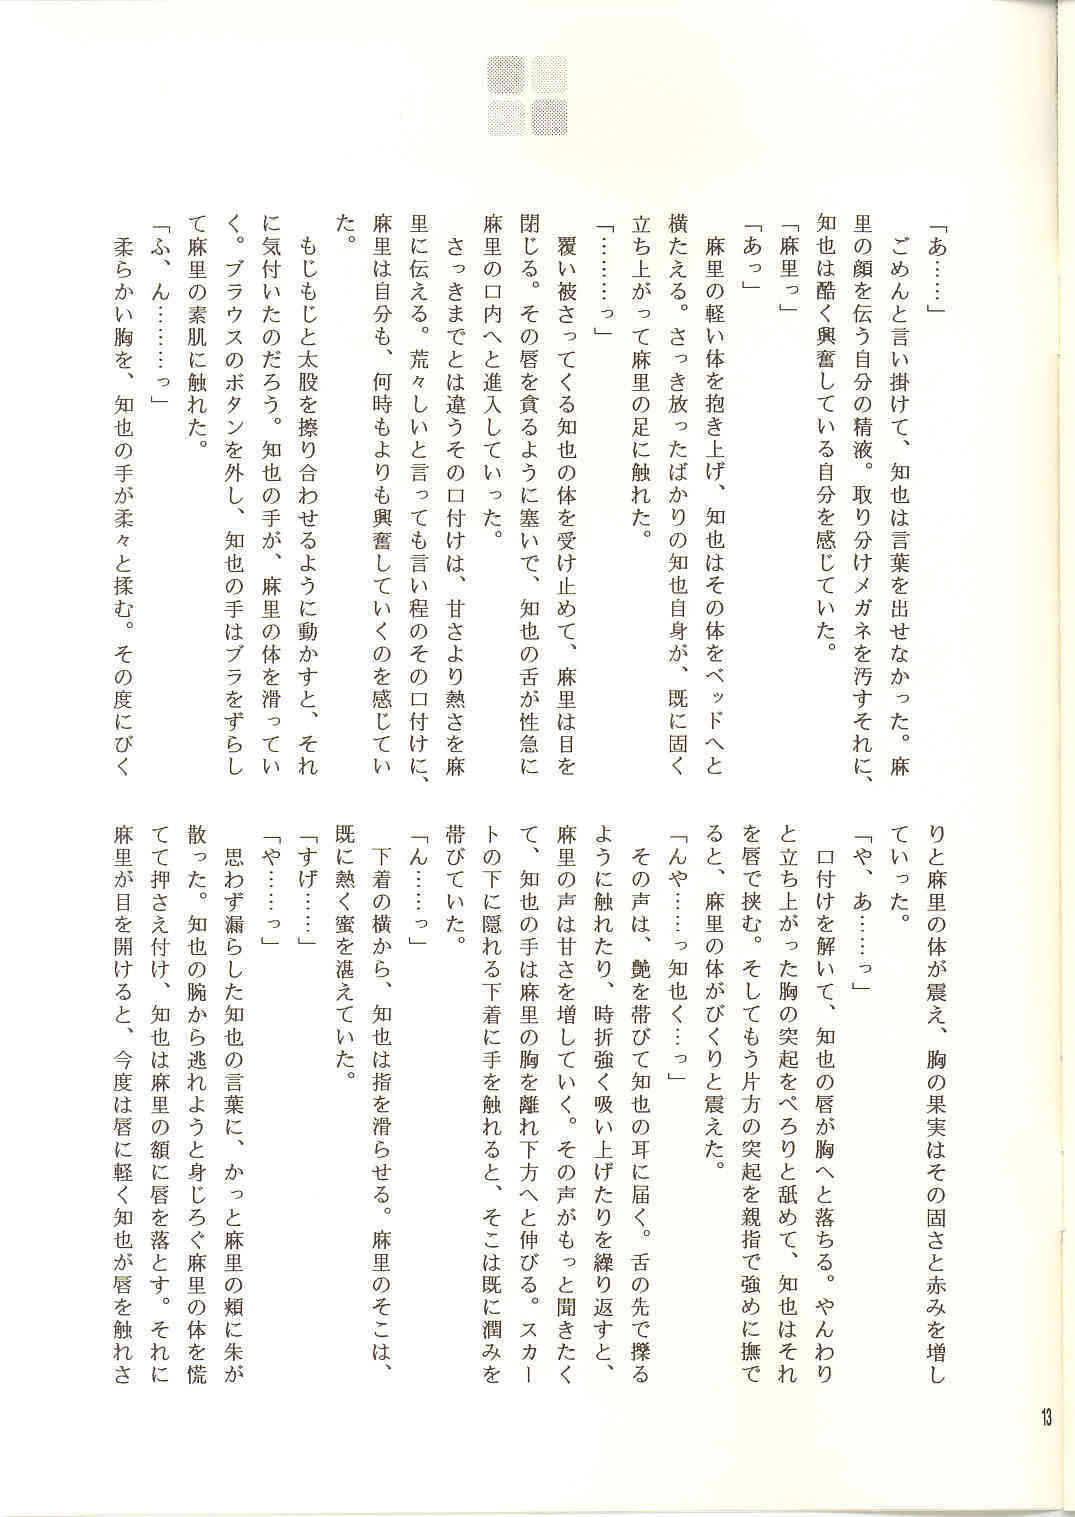 「あ……」
ごめんと言い掛けて、知也は言葉を出せなかった。麻
里の顔を伝う自分の精液。取り分けメガネを汚すそれに、
知也は酷く興奮している自分を感じていた。
「麻里っ」
「あっ」
麻里の軽い体を抱き上げ、知也はその体をベッドへと
横たえる。さっき放ったばかりの知也自身が、既に固く
立ち上がって麻里の足に触れた。
「………っ」
覆い被さってくる知也の体を受け止めて、麻里は目を
閉じる。その唇を貪るように塞いで、知也の舌が性急に
麻里の口内へと進入していった。
さっきまでとは違うその口付けは、甘さより熱さを麻
里に伝える。荒々しいと言っても言い程のその口付けに、
麻里は自分も、何時もよりも興奮していくのを感じてい
た。
もじもじと太股を擦り合わせるように動かすと、それ
に気付いたのだろう。知也の手が、麻里の体を滑ってい
く。ブラウスのボタンを外し、知也の手はブラをずらし
て麻里の素肌に触れた。
「ふ、ん………っ」
柔らかい胸を、知也の手が柔々と揉む。その度にびく
りと麻里の体が震え、胸の果実はその固さと赤みを増し
ていった。
「や、あ……っ」
口付けを解いて、知也の唇が胸へと落ちる。やんわり
と立ち上がった胸の突起をぺろりと舐めて、知也はそれ
を唇で挟む。そしてもう片方の突起を親指で強めに撫で
ると、麻里の体がびくりと震えた。
「んや……っ知也く…っ」
その声は、艶を帯びて知也の耳に届く。舌の先で擽る
ように触れたり、時折強く吸い上げたりを繰り返すと、
麻里の声は甘さを増していく。その声がもっと聞きたく
て、知也の手は麻里の胸を離れ下方へと伸びる。スカー
トの下に隠れる下着に手を触れると、そこは既に潤みを
帯びていた。
「ん……っ」
下着の横から、知也は指を滑らせる。麻里のそこは、
既に熱く蜜を湛えていた。
「すげ……」
「や……っ」
思わず漏らした知也の言葉に、かっと麻里の頬に朱が
散った。知也の腕から逃れようと身じろぐ麻里の体を慌
てて押さえ付け、知也は麻里の額に唇を落とす。それに
麻里が目を開けると、今度は唇に軽く知也が唇を触れさ
13